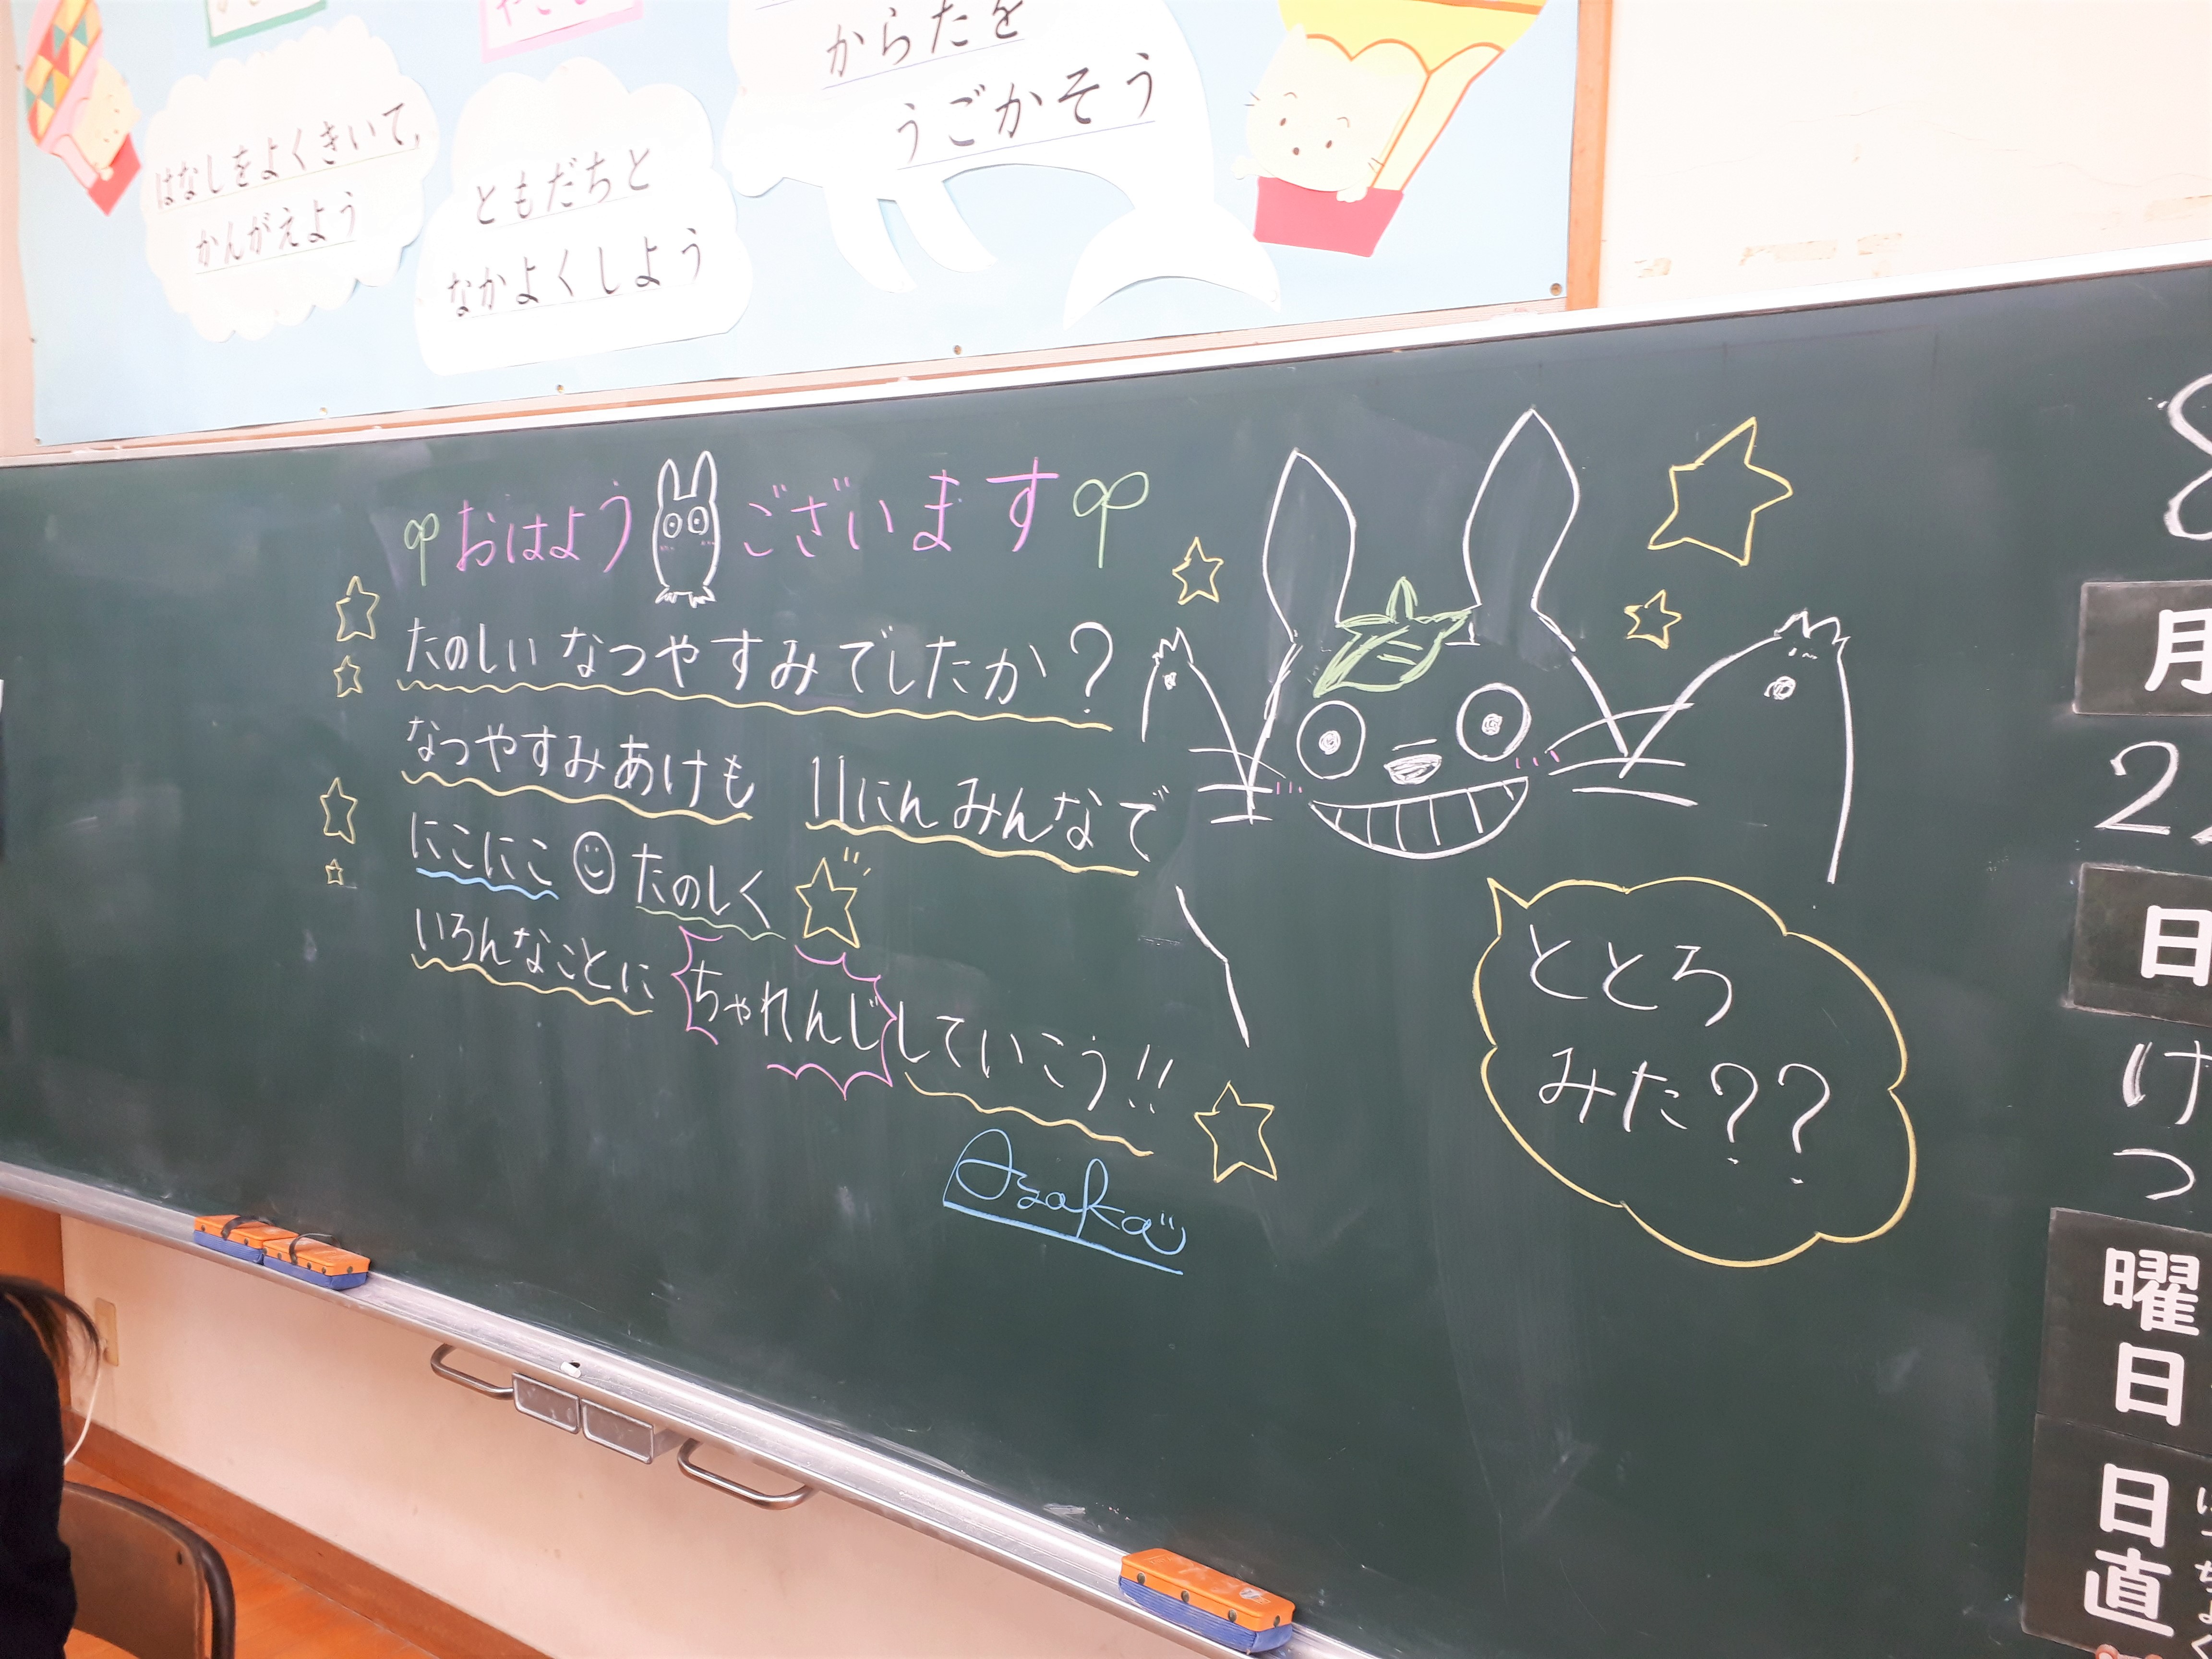 からたを
うごかそう
はなしをよくきいて、
かんがえよう
ともだちと
なかよくしよう
おはようございます
たのしい なつやすみでしたか?
なつやすみあけも 11にん みんなで
にこにこ たのしく
いろんなことに ちゃれんじしていこう!!
Ozaka
ととろ
みた??
8
月
2
日
けつ
曜日
日直